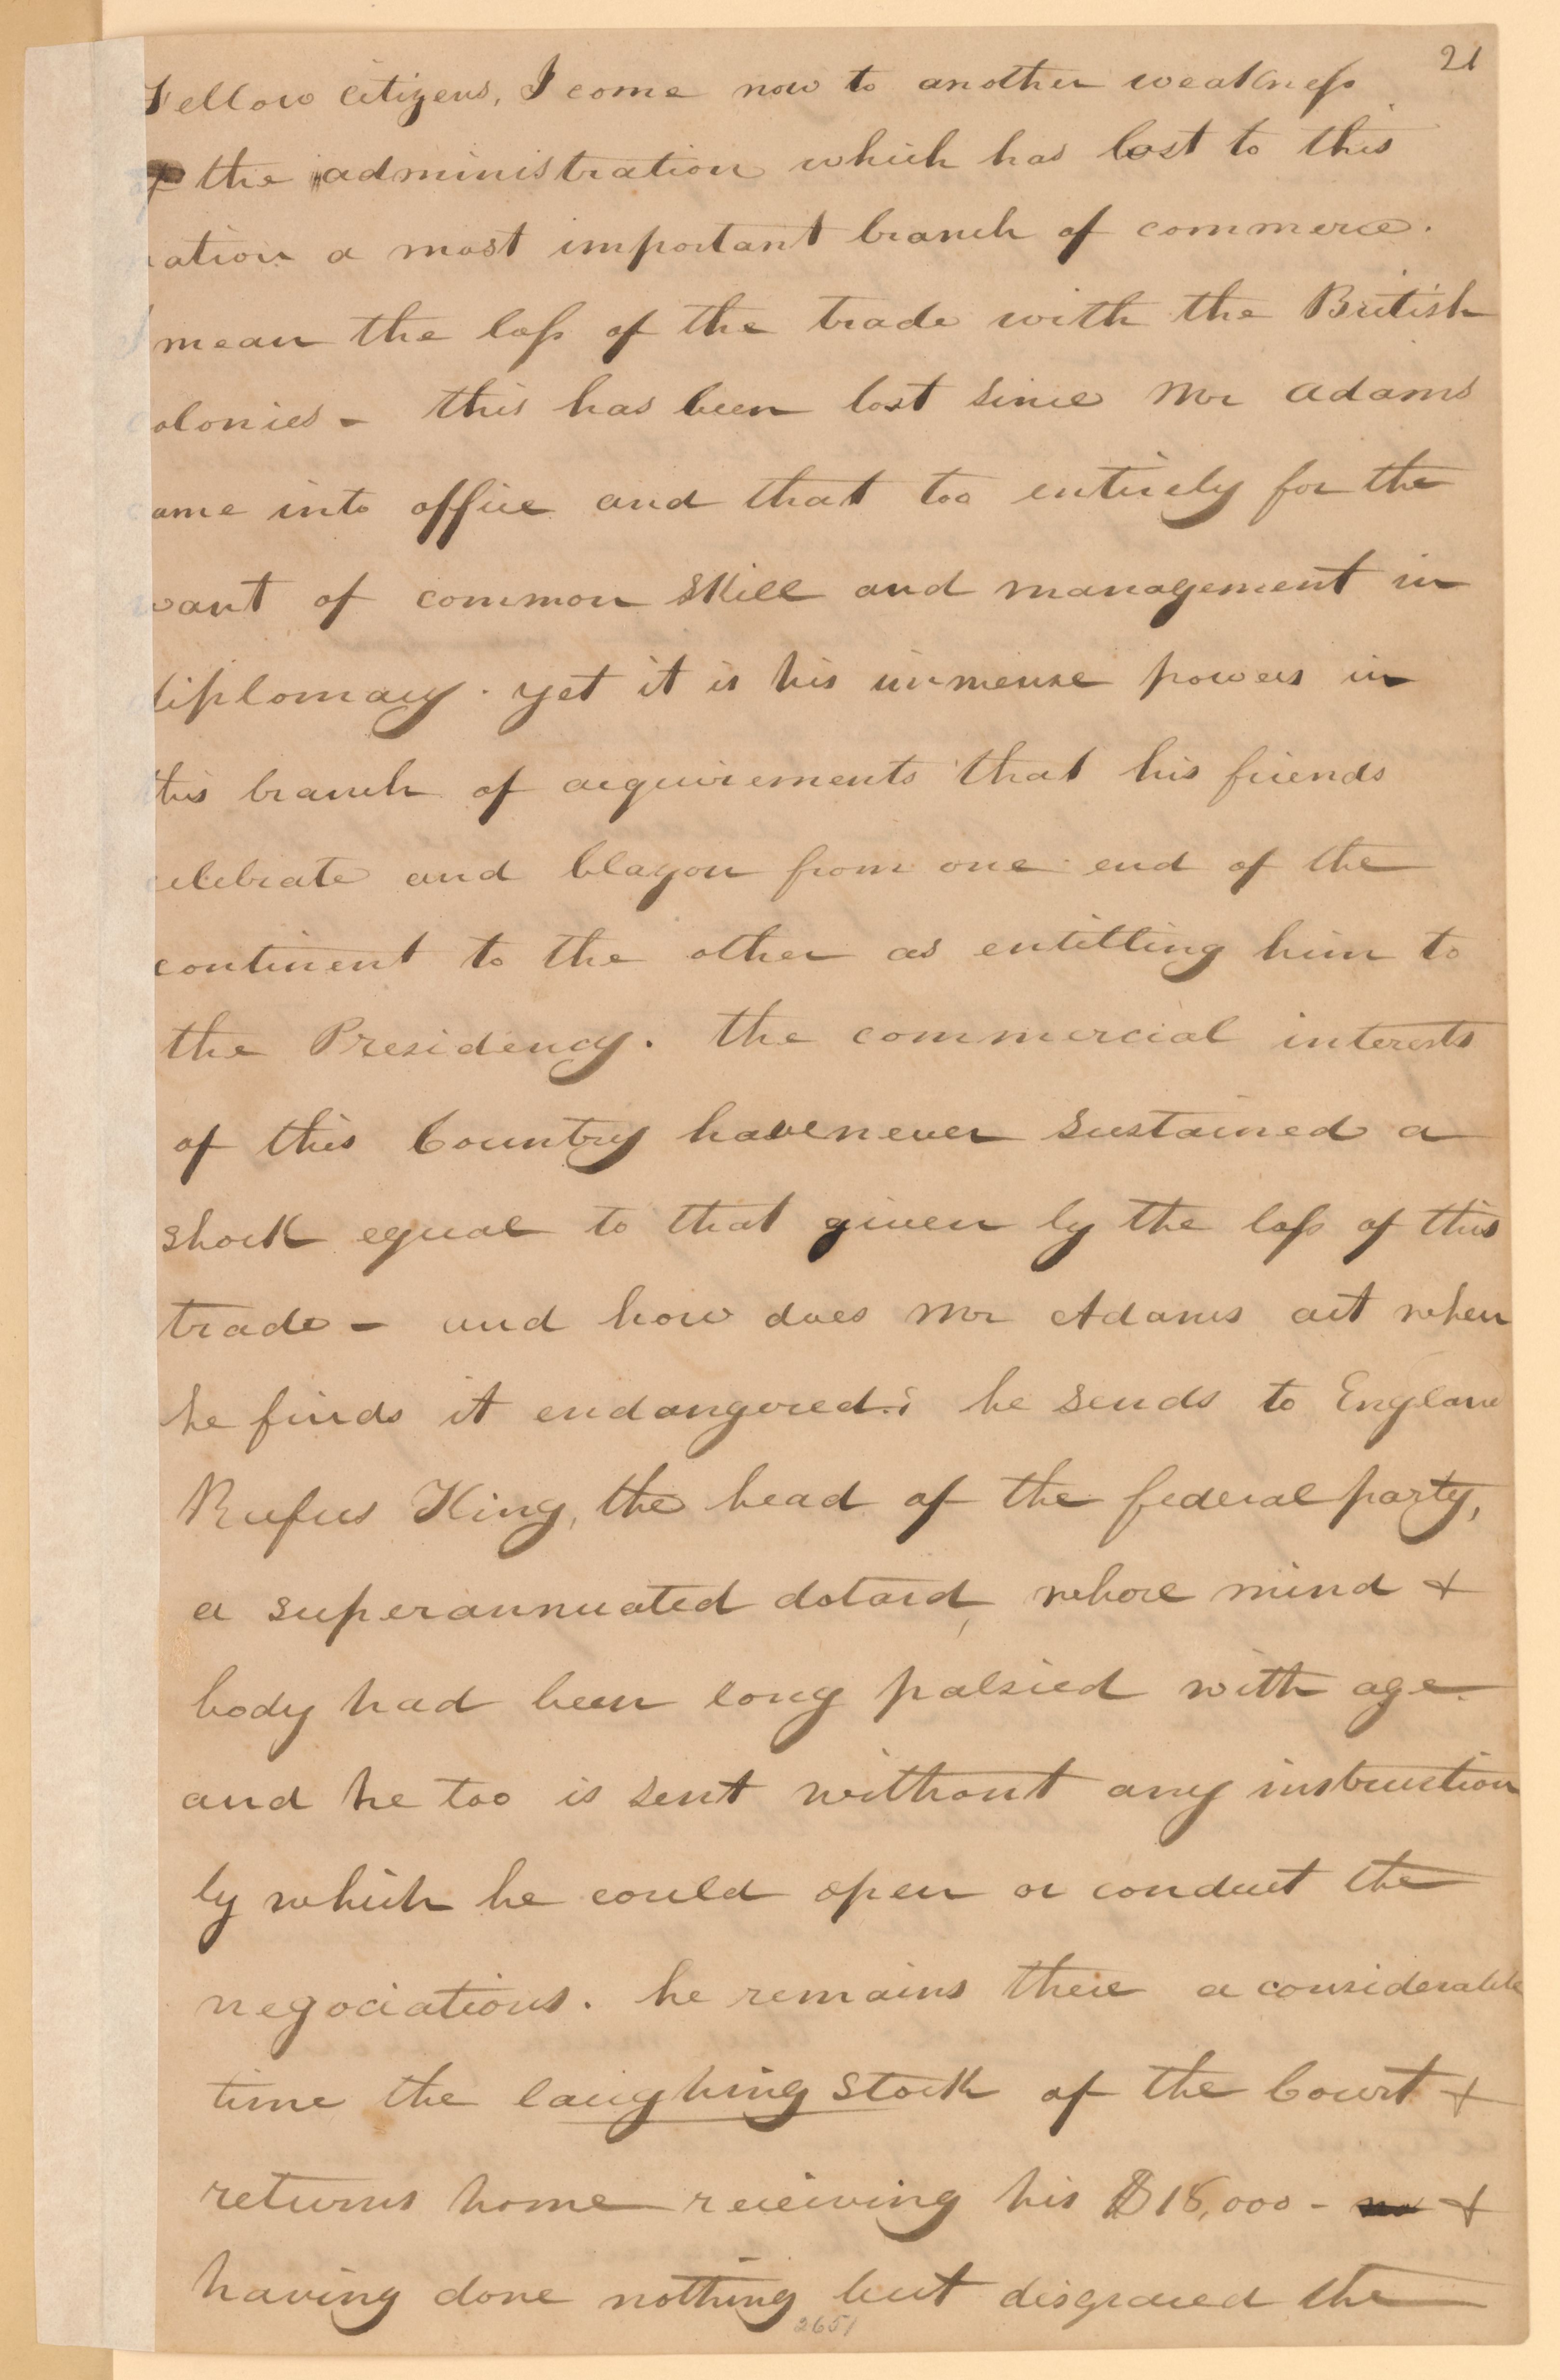 21
Fellow citizens, I come now to another weakness
of the administration which has lost to this
nation a most important branch of commerce.
I mean the loss of the trade with the British
colonies - this has been lost since Mr Adams
came into office and that too entirely for the
want of common skill and management in
diplomacy. yet it is his immense powers in
this branch of acquirements that his friends
celebrate and blazon from one end of the
continent to the other as entitling him to
the Presidency. the commercial interests
of this Country have never sustained a
shock equal to that given by the loss of this
trade - and how does Mr Adams act when
he finds it endangered.? he sends to England
Rufus King, the head of the federal party,
a superannuated dotard, whose mind &
body had been long palsied with age
and he too is sent without any instruction
by which he could open or conduct the
negociations. he remains there a considerable
time the laughing stock of the Court &
returns home receiving his $18,000 - &
having done nothing but disgraced the
2651